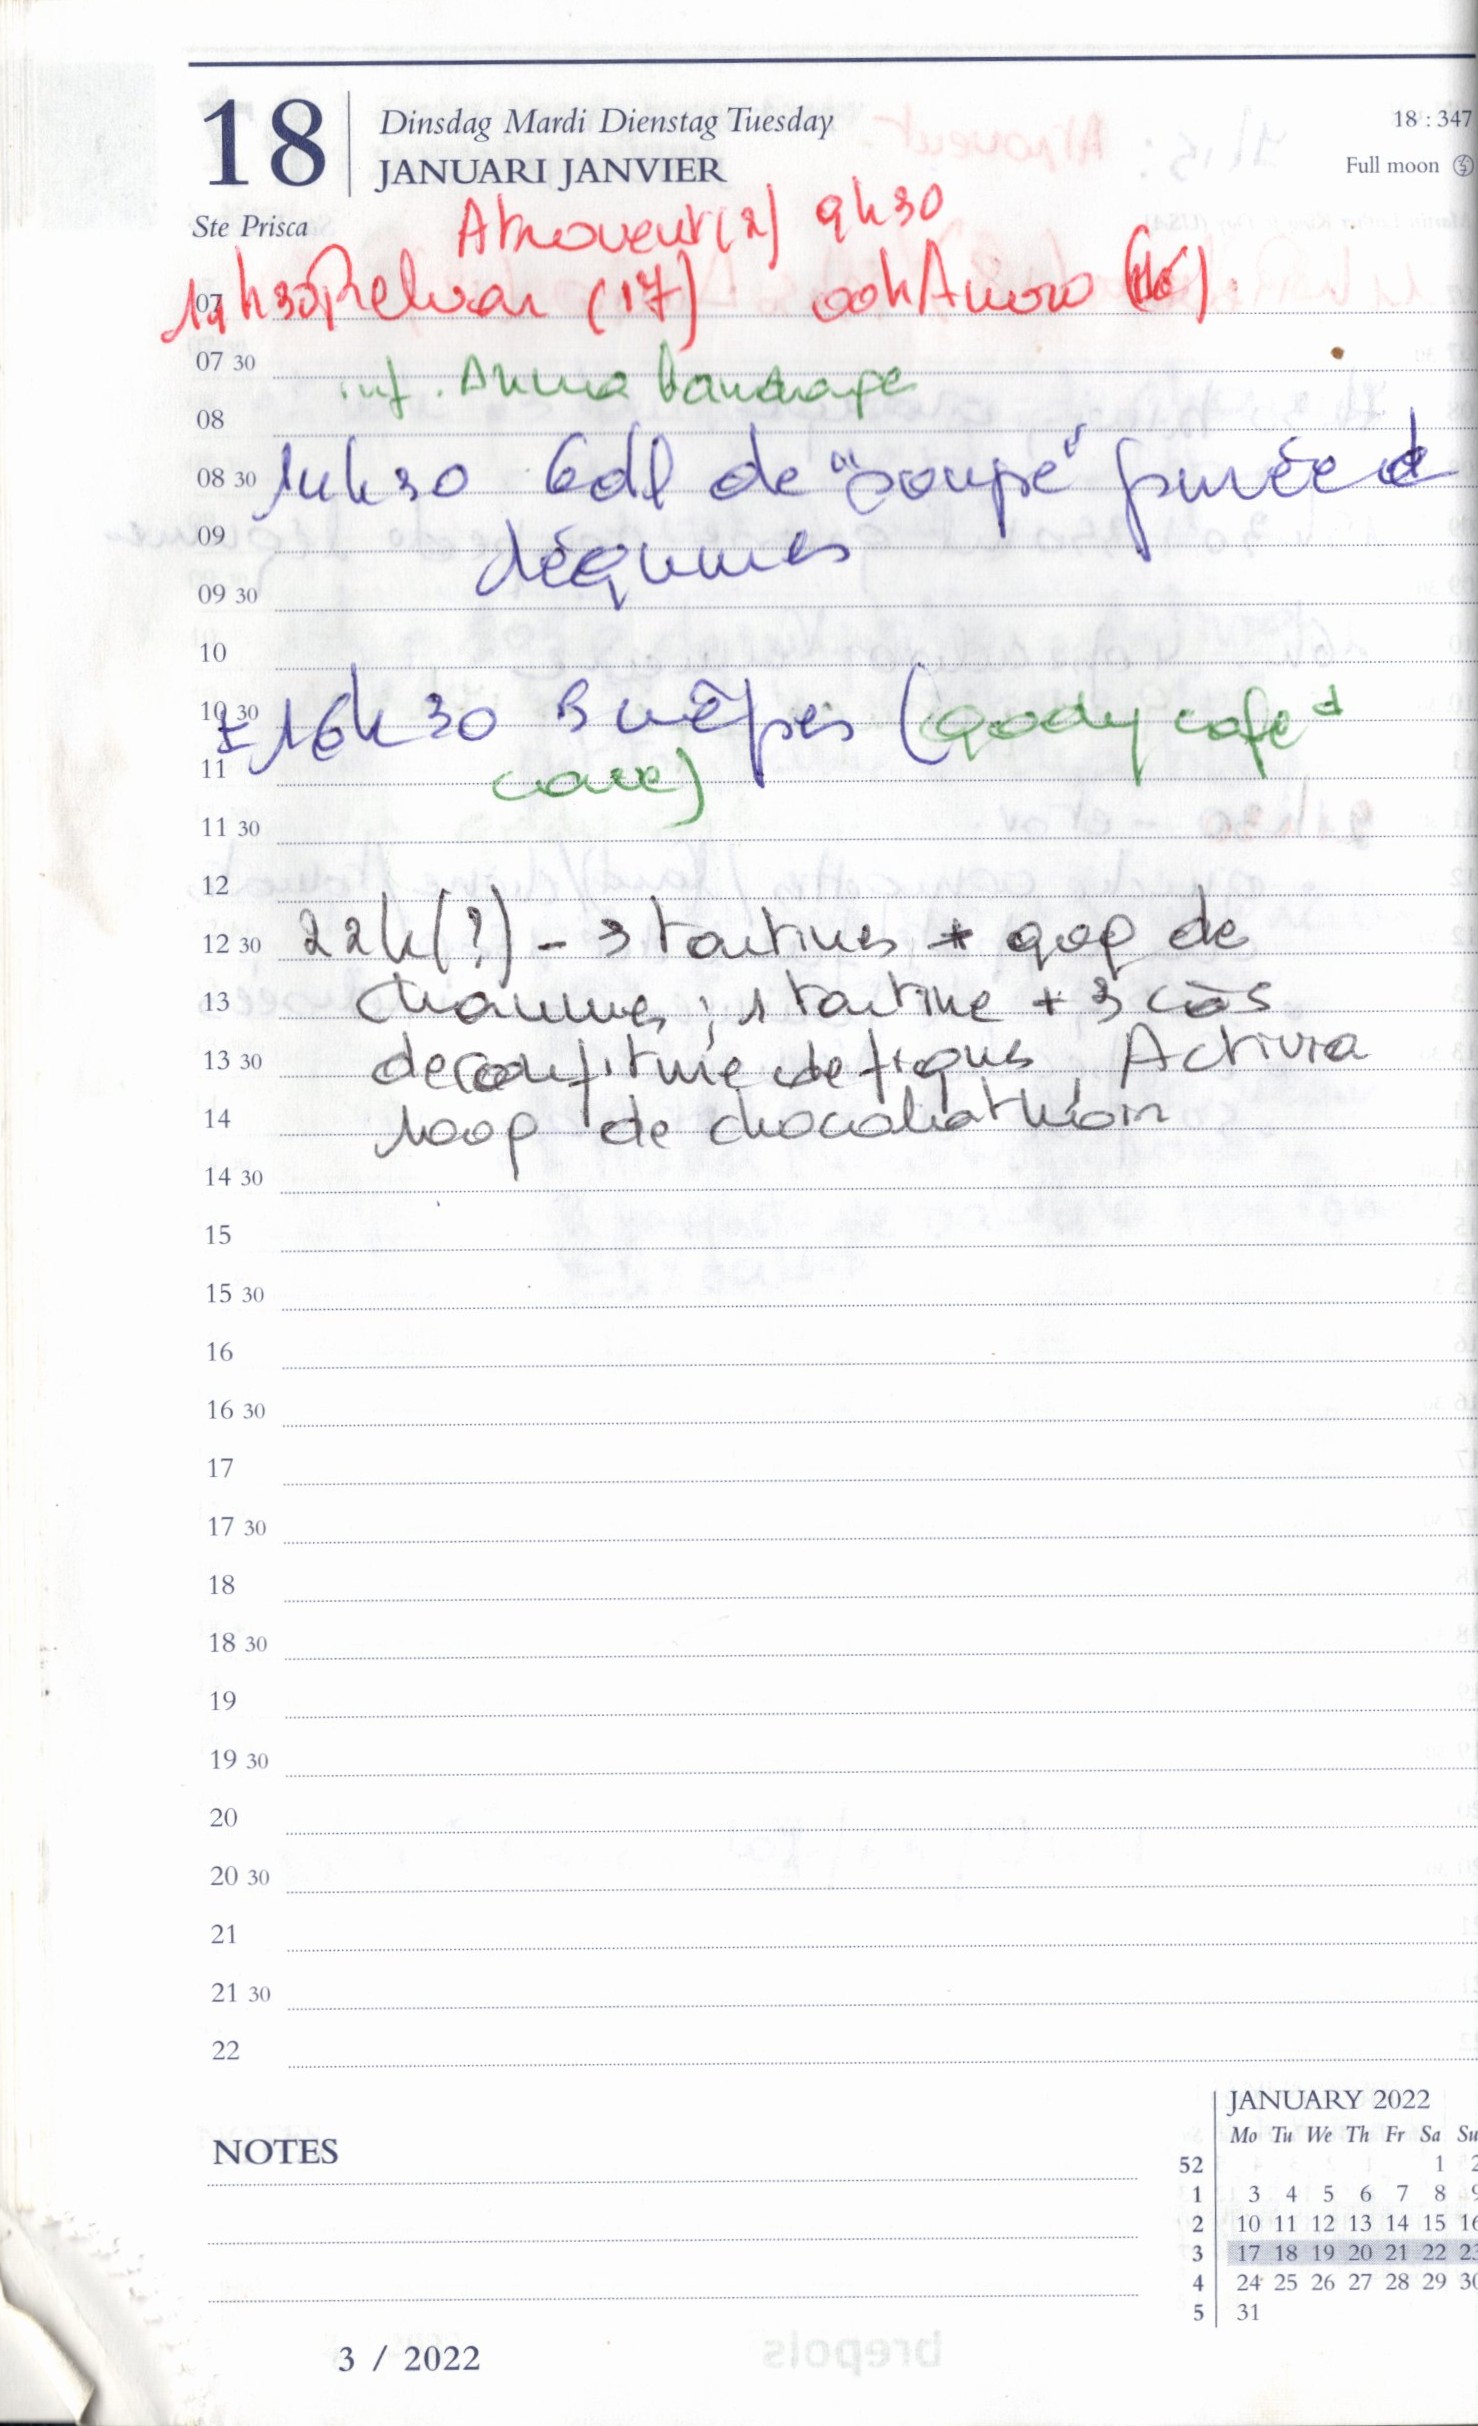 18 Dinsdag Mardi Dienstag Tuesday 18 : 347
JANUARI JANVIER Full moon
Ste Prisca Atrovent (2) 9h30
07 Relvar (17) 00h
07 30
inf. Anna bandage
08
08 30 14h30 6dl de "soupe" purée d
09 légumes
09 30
10
10 30 ± 16h30 3 crêpes (Gody café d
11 cave)
11 30
12
12 30 22h(?) - 3 tartines + 90g de
13 chaumes ; 1 tartine + 3 càs
13 30 de confiture de figues, Activia
14 100g de chocolat
14 30
15
15 30
16
16 30
17
17 30
18
18 30
19
19 30
20
20 30
21
21 30
22
JANUARY 2022
Mo Tu We Th Fr Sa Su
NOTES
52 1 2
1 3 4 5 6 7 8 9
2 10 11 12 13 14 15 16
3 17 18 19 20 21 22 23
4 24 25 26 27 28 29 30
5 31
3 / 2022
brepols